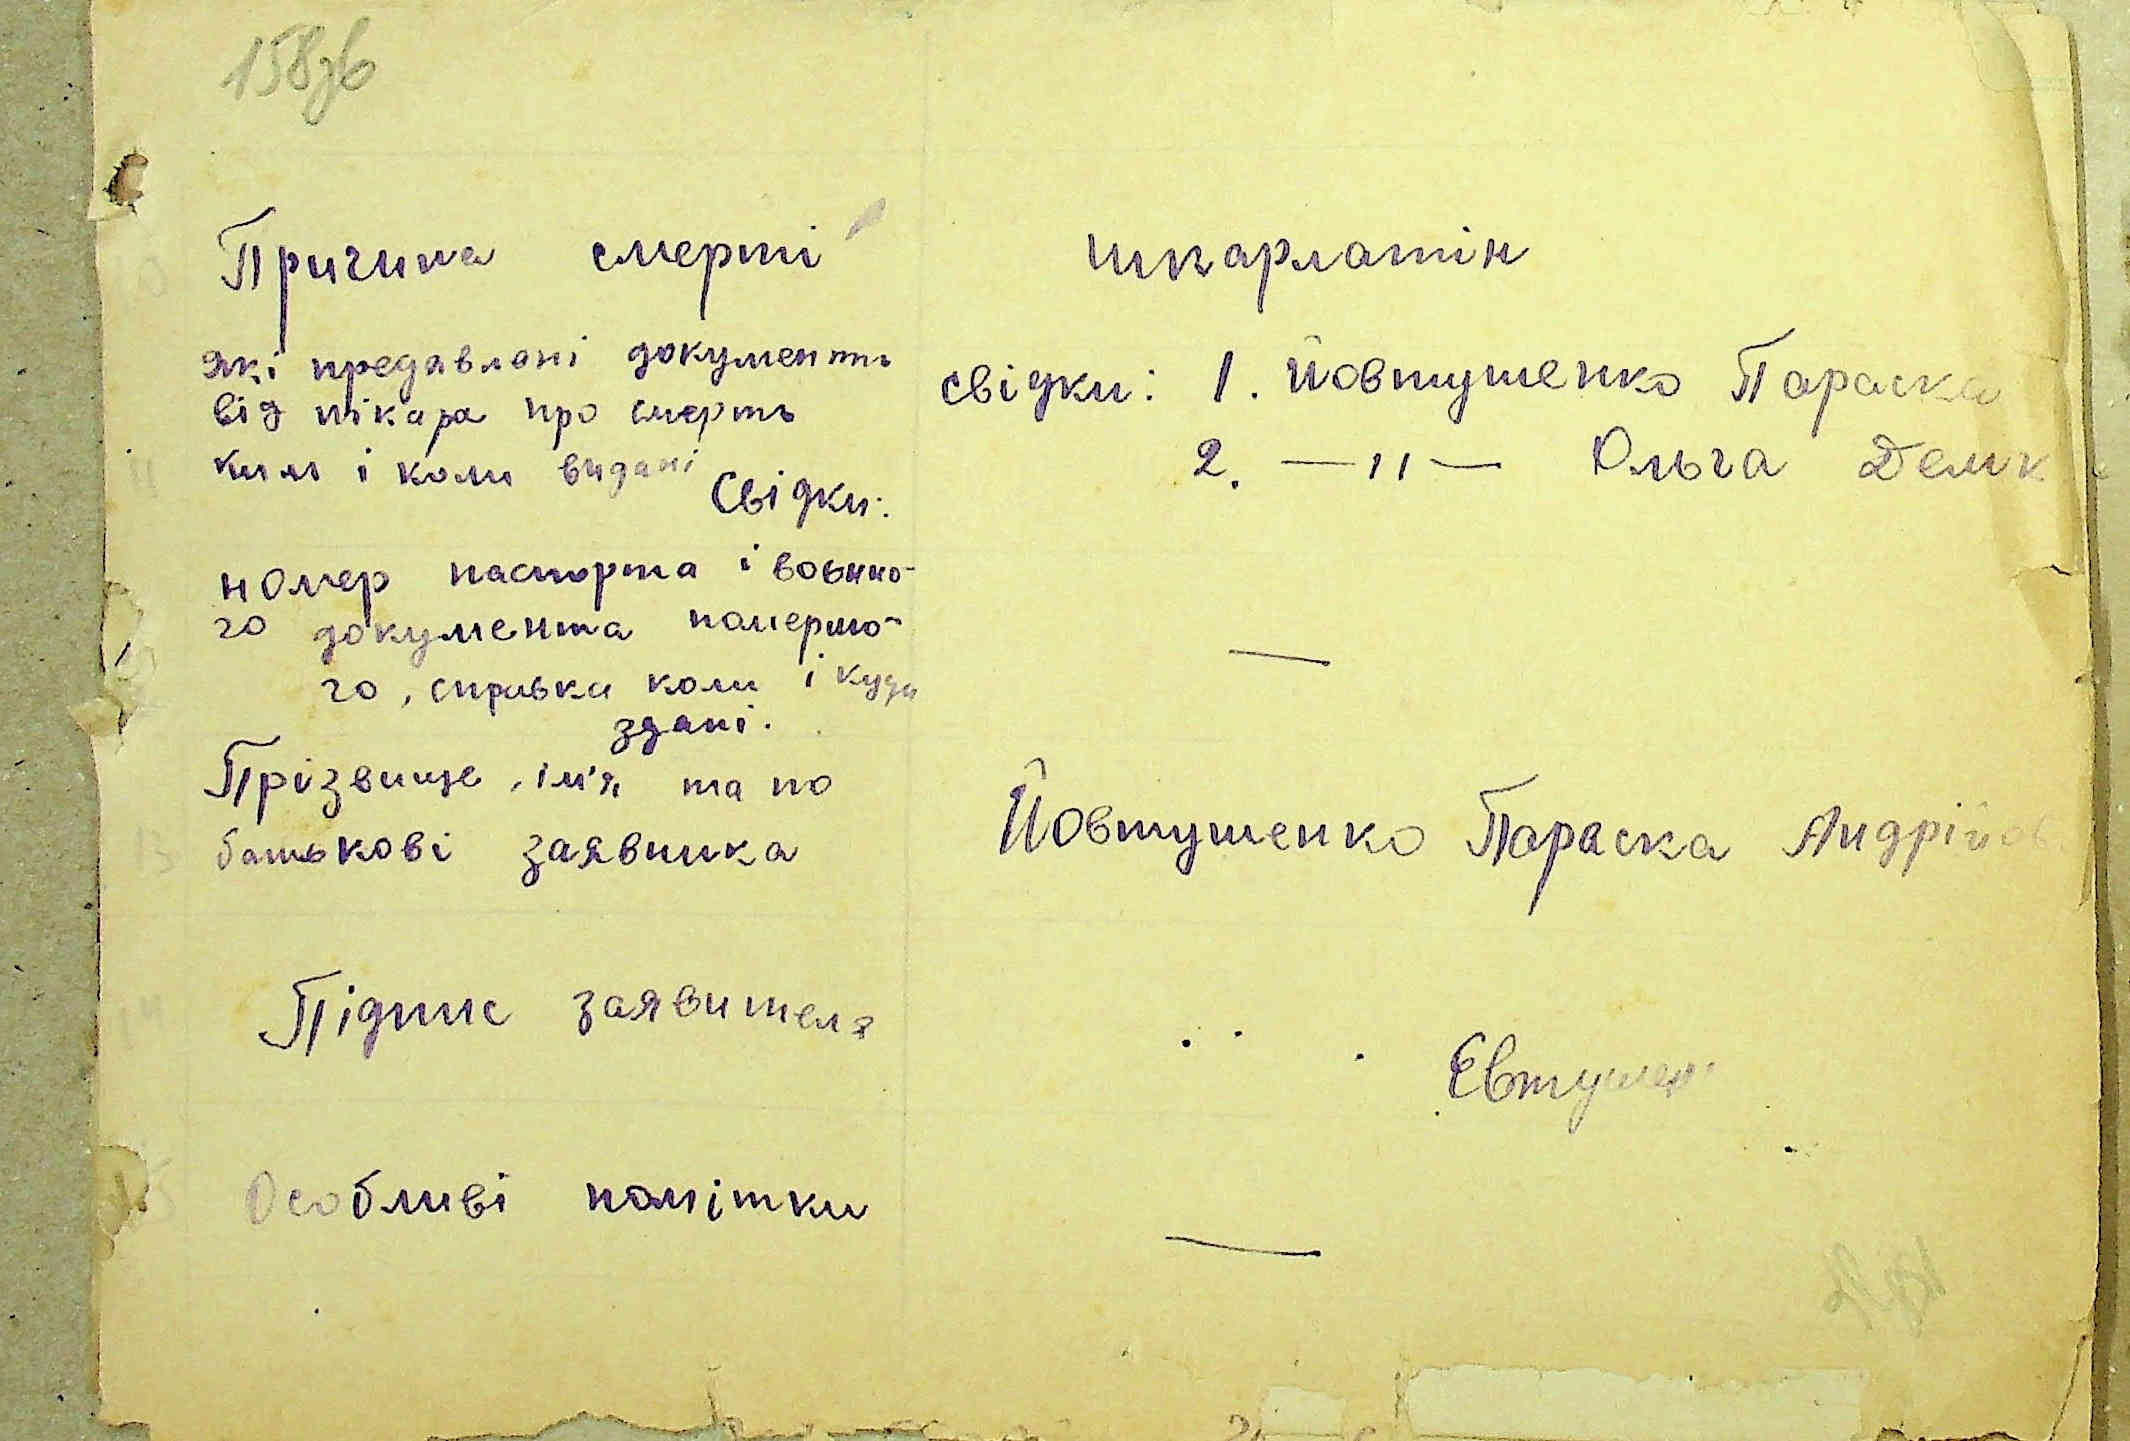 158зв
Причина смерті шкарлатін
які предавлані документи
від лікара про смерть
ким і коли видані
Свідки:
свідки: 1. Йовтушенко Параска
2. —〃— Ольга Демк
номер паспорта і воьнно-
го документа помершо-
го, справка коли і куда
здані. —
Прізвище, ім'я та по
батькові заявника
Йовтушенко Параска Андрійов
Підпис заявителя Євтушен
Особливі помітки —